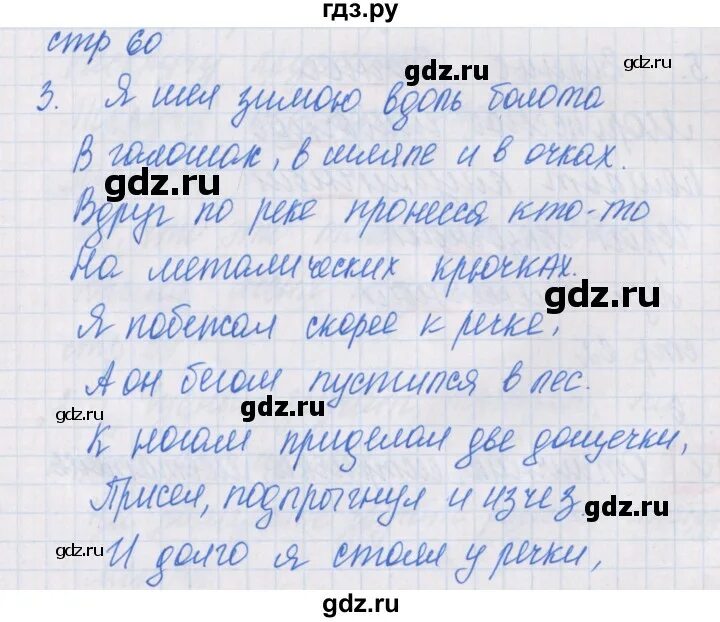 гдз.ру
стр 60
gdz.ru
3. Я шел зимою вдоль болота
В галошах, в шляпе и в очках.
gdz.ru
Вдруг по реке пронесся кто-то
На металических крючках.
gdz.ru
Я побежал скорее к речке,
А он бегом пустился в лес.
gdz.ru
gdz.ru
К ногам приделал две дощечки,
Присел, подпрыгнул и изчез
gdz.ru
gdz.ru
И долго я стоял у речки,
gdz.ru